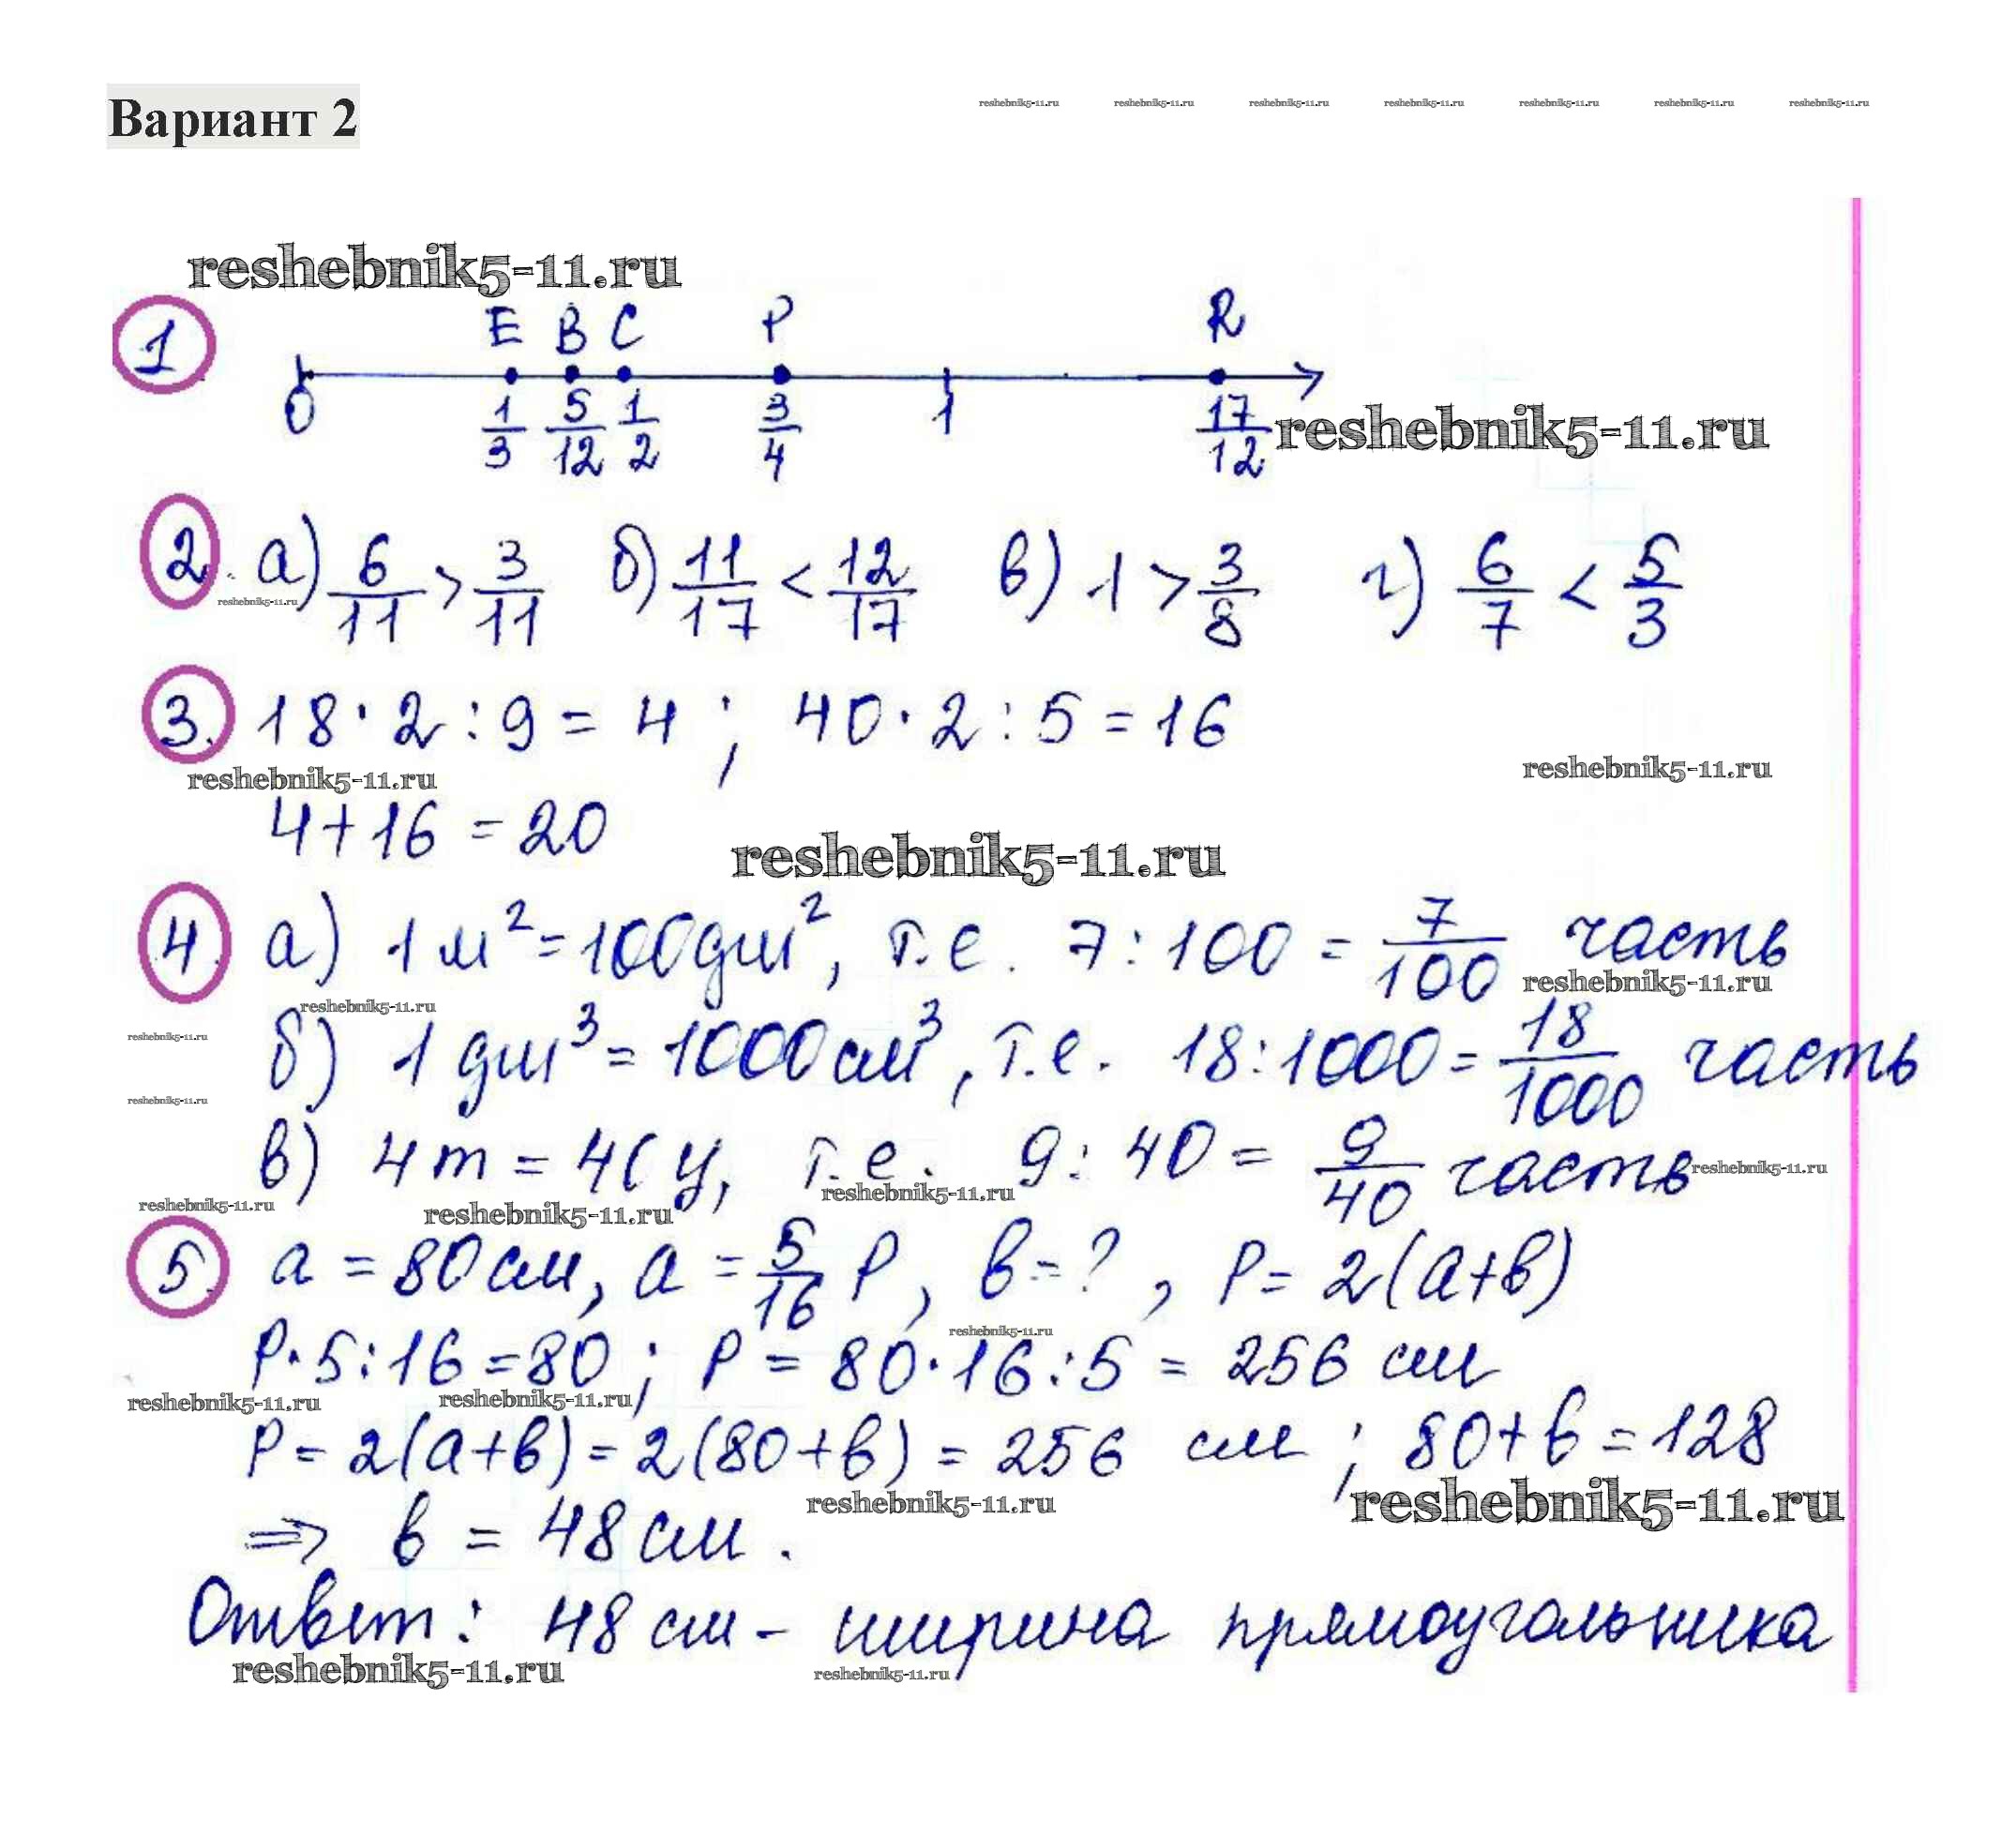 Вариант 2
reshebnik5-11.ru reshebnik5-11.ru reshebnik5-11.ru reshebnik5-11.ru reshebnik5-11.ru reshebnik5-11.ru reshebnik5-11.ru
reshebnik5-11.ru
1 E B C P R
0 1/3 5/12 1/2 3/4 1 17/12 reshebnik5-11.ru
2. а) 6/11 > 3/11 б) 11/17 < 12/17 в) 1 > 3/8 г) 6/7 < 5/3
reshebnik5-11.ru
3. 18 · 2 : 9 = 4 ; 40 · 2 : 5 = 16
reshebnik5-11.ru reshebnik5-11.ru
4 + 16 = 20
reshebnik5-11.ru
4. а) 1 м² = 100 дм², т.е. 7 : 100 = 7/100 часть
reshebnik5-11.ru
reshebnik5-11.ru
reshebnik5-11.ru
б) 1 дм³ = 1000 см³, т.е. 18 : 1000 = 18/1000 часть
reshebnik5-11.ru
в) 4 т = 40 ц, т.е. 9 : 40 = 9/40 часть reshebnik5-11.ru
reshebnik5-11.ru reshebnik5-11.ru reshebnik5-11.ru
5. a = 80 см, a = 5/16 P, в = ? , P = 2(a+в)
reshebnik5-11.ru
P · 5 : 16 = 80 ; P = 80 · 16 : 5 = 256 см
reshebnik5-11.ru reshebnik5-11.ru
P = 2(a+в) = 2(80+в) = 256 см ; 80 + в = 128
reshebnik5-11.ru reshebnik5-11.ru
⇒ в = 48 см .
Ответ: 48 см - ширина прямоугольника
reshebnik5-11.ru reshebnik5-11.ru